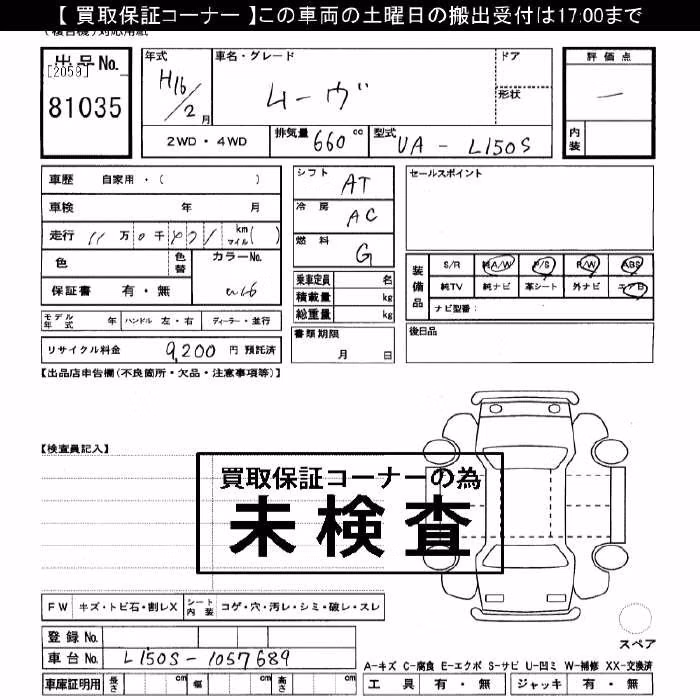 【 買取保証コーナー 】この車両の土曜日の搬出受付は17:00まで
出品No.
[2059]
81035
年式
H16/2月
車名・グレード
ムーヴ
ドア
形状
評価点
一
内装
2WD・4WD
排気量 660 cc
型式 UA - L150S
車歴 自家用・( )
車検 年 月
走行 11万0千
km
マイル( )
色
色替
カラーNo.
保証書 有・無
モデル年式 年
ハンドル 左・右
ディーラー・並行
リサイクル料金 9,200 円 預託済
シフト AT
冷房 AC
燃料 G
乗車定員 名
積載量 kg
総重量 kg
書類期限
月 日
セールスポイント
装備品
S/R 純A/W P/S P/W ABS
純TV 純ナビ 革シート 外ナビ エアB
ナビ型番:
後日品
【出品店申告欄(不良箇所・欠品・注意事項等)】
【検査員記入】
買取保証コーナーの為
未検査
FW キズ・トビ石・割レX
シート内装 コゲ・穴・汚レ・シミ・破レ・スレ
登録 No.
車台 No. L150S-1057689
車庫証明用 長さ cm 幅 cm 高さ cm
スペア
A-キズ C-腐食 E-エクボ S-サビ U-凹ミ W-補修 XX-交換済
工具 有・無 ジャッキ 有・無